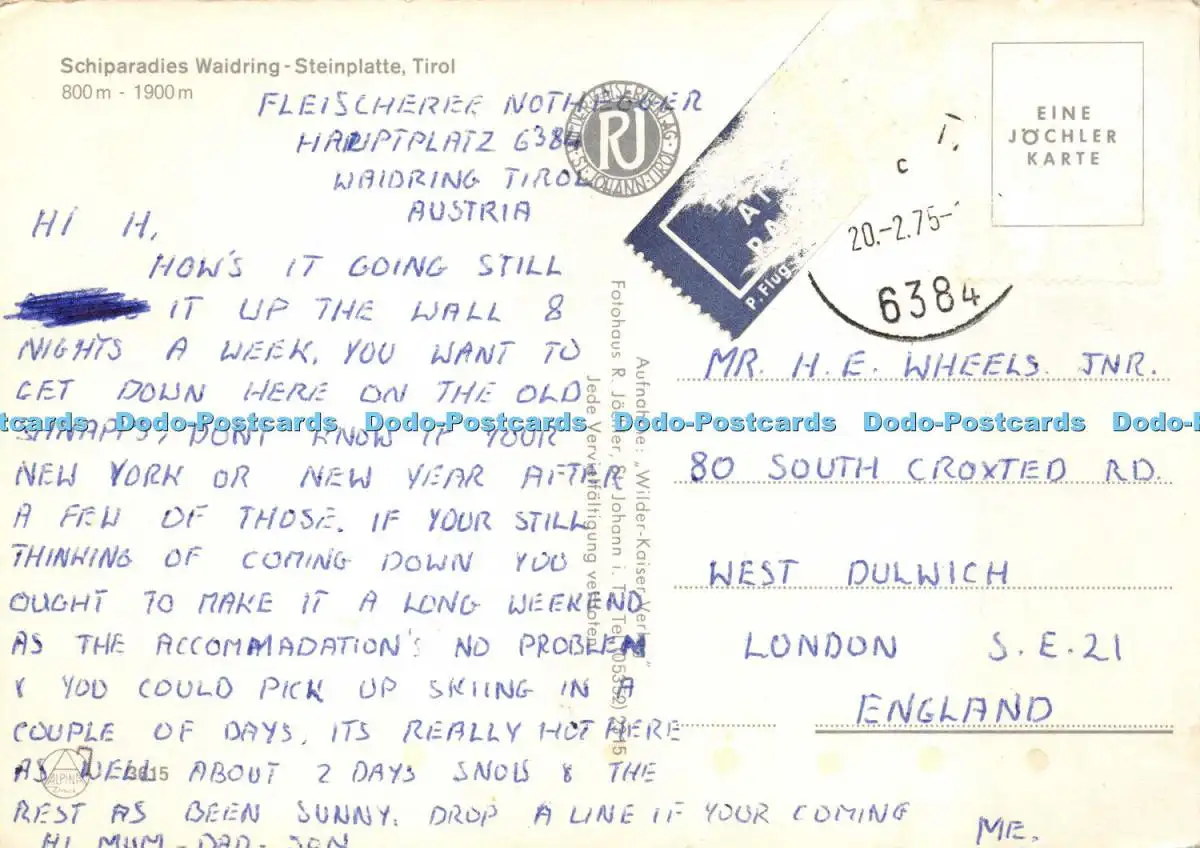 Schiparadies Waidring - Steinplatte, Tirol
800 m - 1900 m
FLEISCHEREE NOTHEGGER
HAUPTPLATZ 6384
WAIDRING TIROL
AUSTRIA
HI H,
HOW'S IT GOING STILL
IT UP THE WALL 8
NIGHTS A WEEK. YOU WANT TO
GET DOWN HERE ON THE OLD
SHNAPPS, DONT KNOW IF YOUR
NEW YORK OR NEW YEAR AFTER
A FEW OF THOSE. IF YOUR STILL
THINKING OF COMING DOWN YOU
OUGHT TO MAKE IT A LONG WEEKEND
AS THE ACCOMMADATION'S NO PROBLEM
& YOU COULD PICK UP SKIING IN A
COUPLE OF DAYS. ITS REALLY HOT HERE
AS WELL ABOUT 2 DAYS SNOW & THE
REST AS BEEN SUNNY. DROP A LINE IF YOUR COMING
HI MUM - DAD - JAN
ME.
ALPINA
3615
WILDER KAISER VERLAG · ST. JOHANN · TIROL ·
RJ
Aufnahme: „Wilder-Kaiser-Verlag"
Fotohaus R. Jöchler, St. Johann i. T., Tel. (05352)
Jede Vervielfältigung verboten
P. Flug
20.-2.75-
c
6384
EINE
JÖCHLER
KARTE
MR. H. E. WHEELS JNR.
80 SOUTH CROXTED RD.
WEST DULWICH
LONDON S.E.21
ENGLAND
Dodo-Postcards Dodo-Postcards Dodo-Postcards Dodo-Postcards Dodo-Postcards